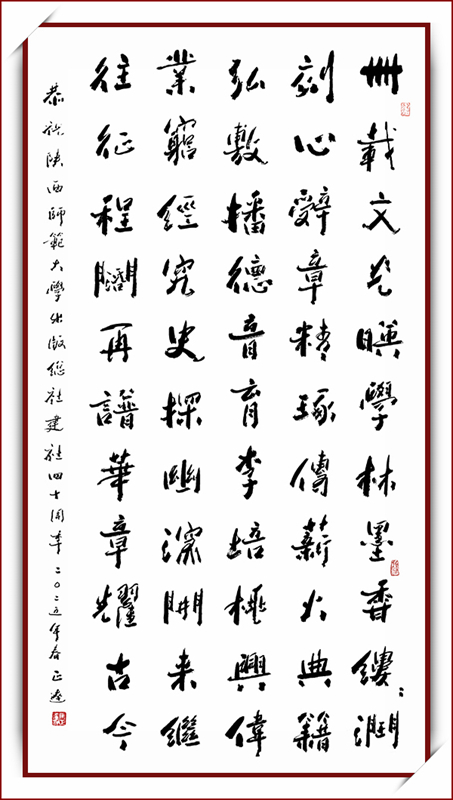 卌載文光暎學林墨香縷〻潤
刻心辭章精琢傳薪火典籍
弘敷播德音育李培桃興偉
業窮經究史探幽深開來繼
往征程闊再譜華章耀古今
恭祝陝西師範大學出版總社建社四十周年二〇二五年春正